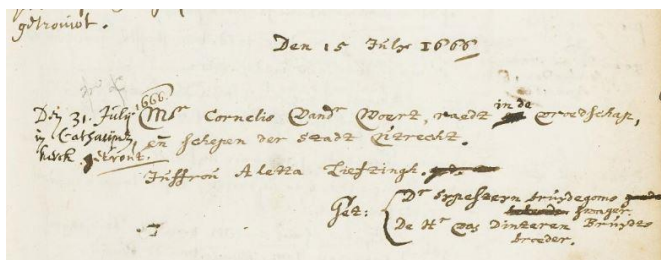 getrouwt.
Den 15 Julÿ 1666
Den 31. Julÿ 1666
in Catharijne
kerck getrout.
Mr Cornelio Vandr Voort, raedt in de vroedschap,
en schepen der Stadt Utrecht.
Juffrou Aletta Lieftingh.
Get: Dr Sypesteyn bruÿdegoms
swager.
De Hr van Dinteren Bruÿdts
broeder.